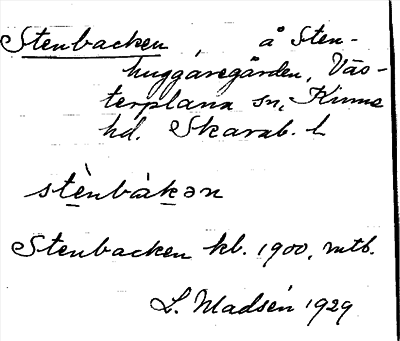 Stenbacken å Sten-
huggaregården, Väs-
terplana sn, Kinne
hd. Skarab. l.
stènbákən
Stenbacken kl. 1900, mtb.
L. Madsén 1929